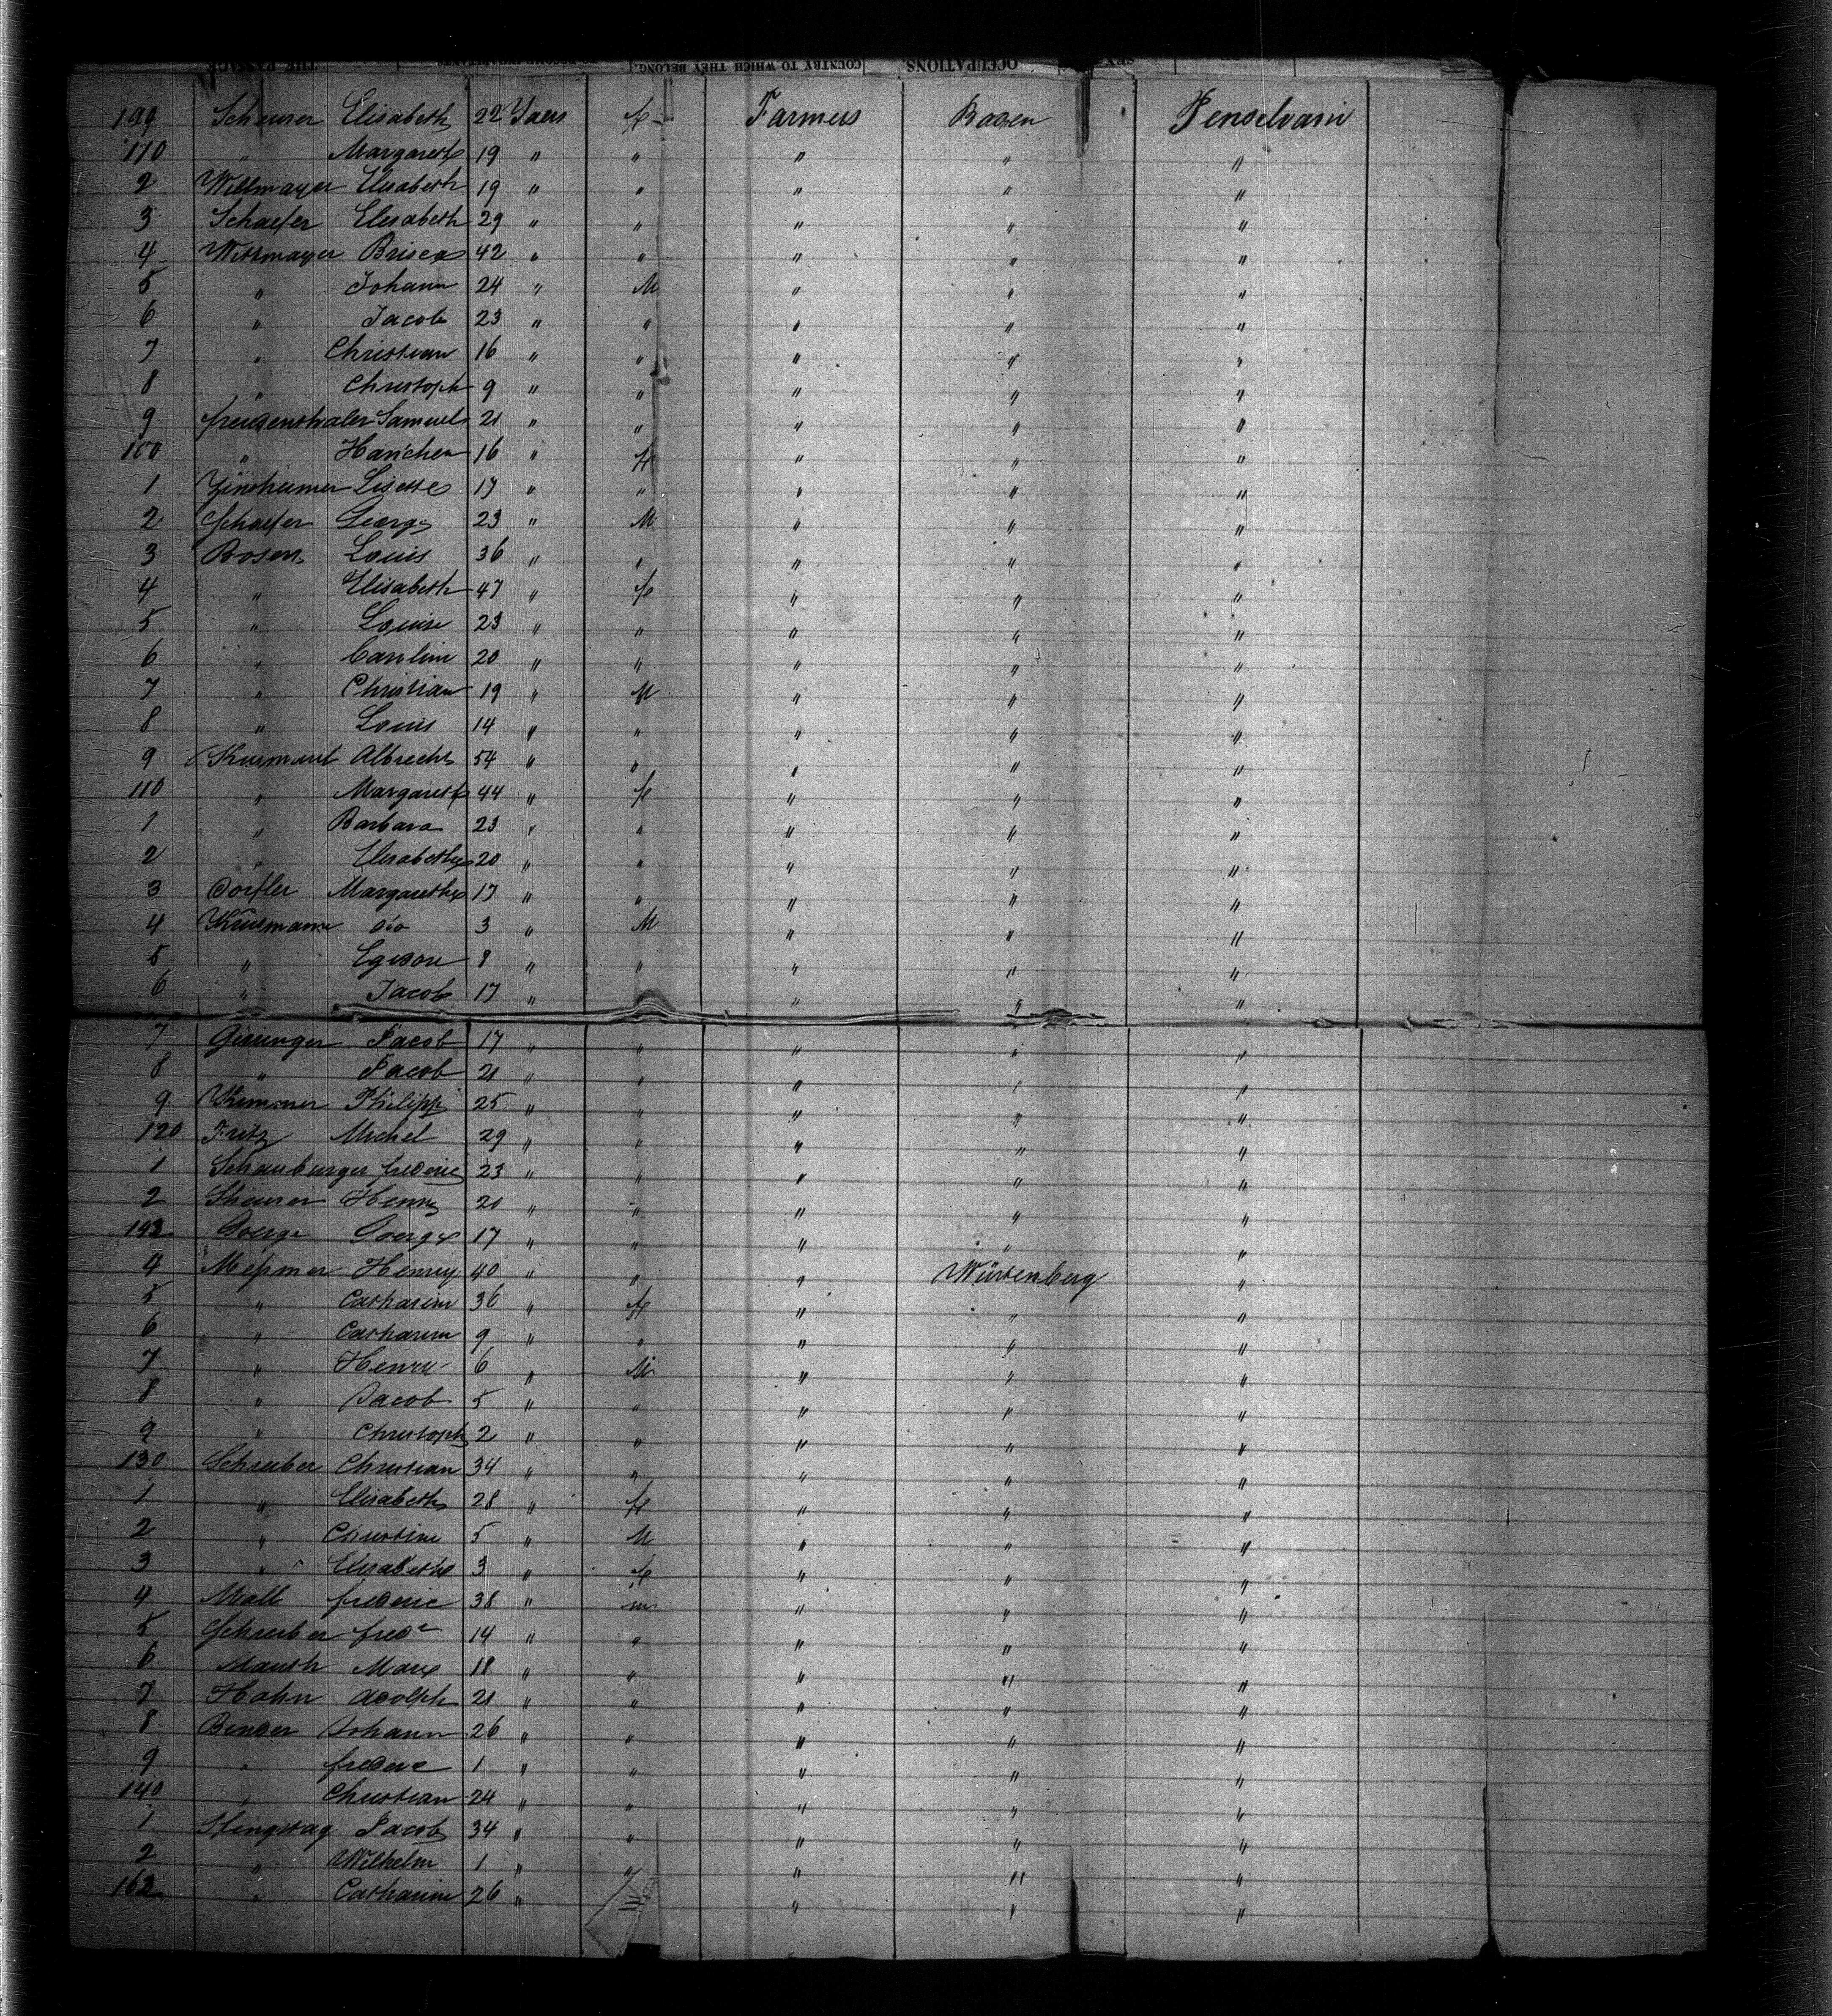 THE PASSAGE COUNTRY TO WHICH THEY BELONG. OCCUPATIONS. SEX
199 Scheurer Elisabeth 22 Yaers f Farmers Baden Penselvani
110 " Margareth 19 " " " " "
2 Wittmayer Elisabeth 19 " " " " "
3 Schaefer Elisabeth 29 " " " " "
4 Wittmayer 42 " " " " "
5 " Johann 24 " M " " "
6 " Jacob 23 " " " " "
7 " Christian 16 " " " " "
8 " Christoph 9 " " " " "
9 freudenthaler Samuel 21 " " " " "
100 " Hanchen 16 " f " " "
1 Zinsheimer Lisette 17 " " " " "
2 Schaefer George 23 " M " " "
3 Bosen Louis 36 " " " " "
4 " Elisabeth 47 " f " " "
5 " Louise 23 " " " " "
6 " Carolin 20 " " " " "
7 " Christian 19 " M " " "
8 " Louis 14 " " " " "
9 Albrecht 54 " " " " "
110 " Margareth 44 " f " " "
1 " Barbara 23 " " " " "
2 " Elisabetha 20 " " " " "
3 Doifler Margaretha 17 " " " " "
4 Kursmann dio 3 " M " " "
5 " 8 " " " " "
6 " Jacob 17 " " " " "
7 Geisinger Jacob 17 " " " " "
8 " Jacob 21 " " " " "
9 Philipp 25 " " " " "
120 Fritz Michel 29 " " " " "
1 Schauburger frederic 23 " " " " "
2 Sheurer Henry 20 " " " " "
143 Goerge Goerge 17 " " " " "
4 Messmer Henry 40 " " " Würtenberg "
5 " Catharine 36 " f " " "
6 " Catharine 9 " " " " "
7 " Henry 6 " M " " "
8 " Jacob 5 " " " " "
9 " Christoph 2 " " " " "
130 Schreiber Christian 34 " " " " "
1 " Elisabeth 28 " f " " "
2 " Christine 5 " M " " "
3 " Elisabeth 3 " f " " "
4 Mall frederic 38 " m " " "
5 Schreiber fredr 14 " " " " "
6 Marie 18 " " " " "
7 Hahn Adolph 21 " " " " "
8 Bender Johann 26 " " " " "
9 " frederic 1 " " " " "
140 " Christian 24 " " " " "
1 Hengstag Jacob 34 " " " " "
2 " Wilhelm 1 " " " " "
162 " Catharine 26 " " " " "